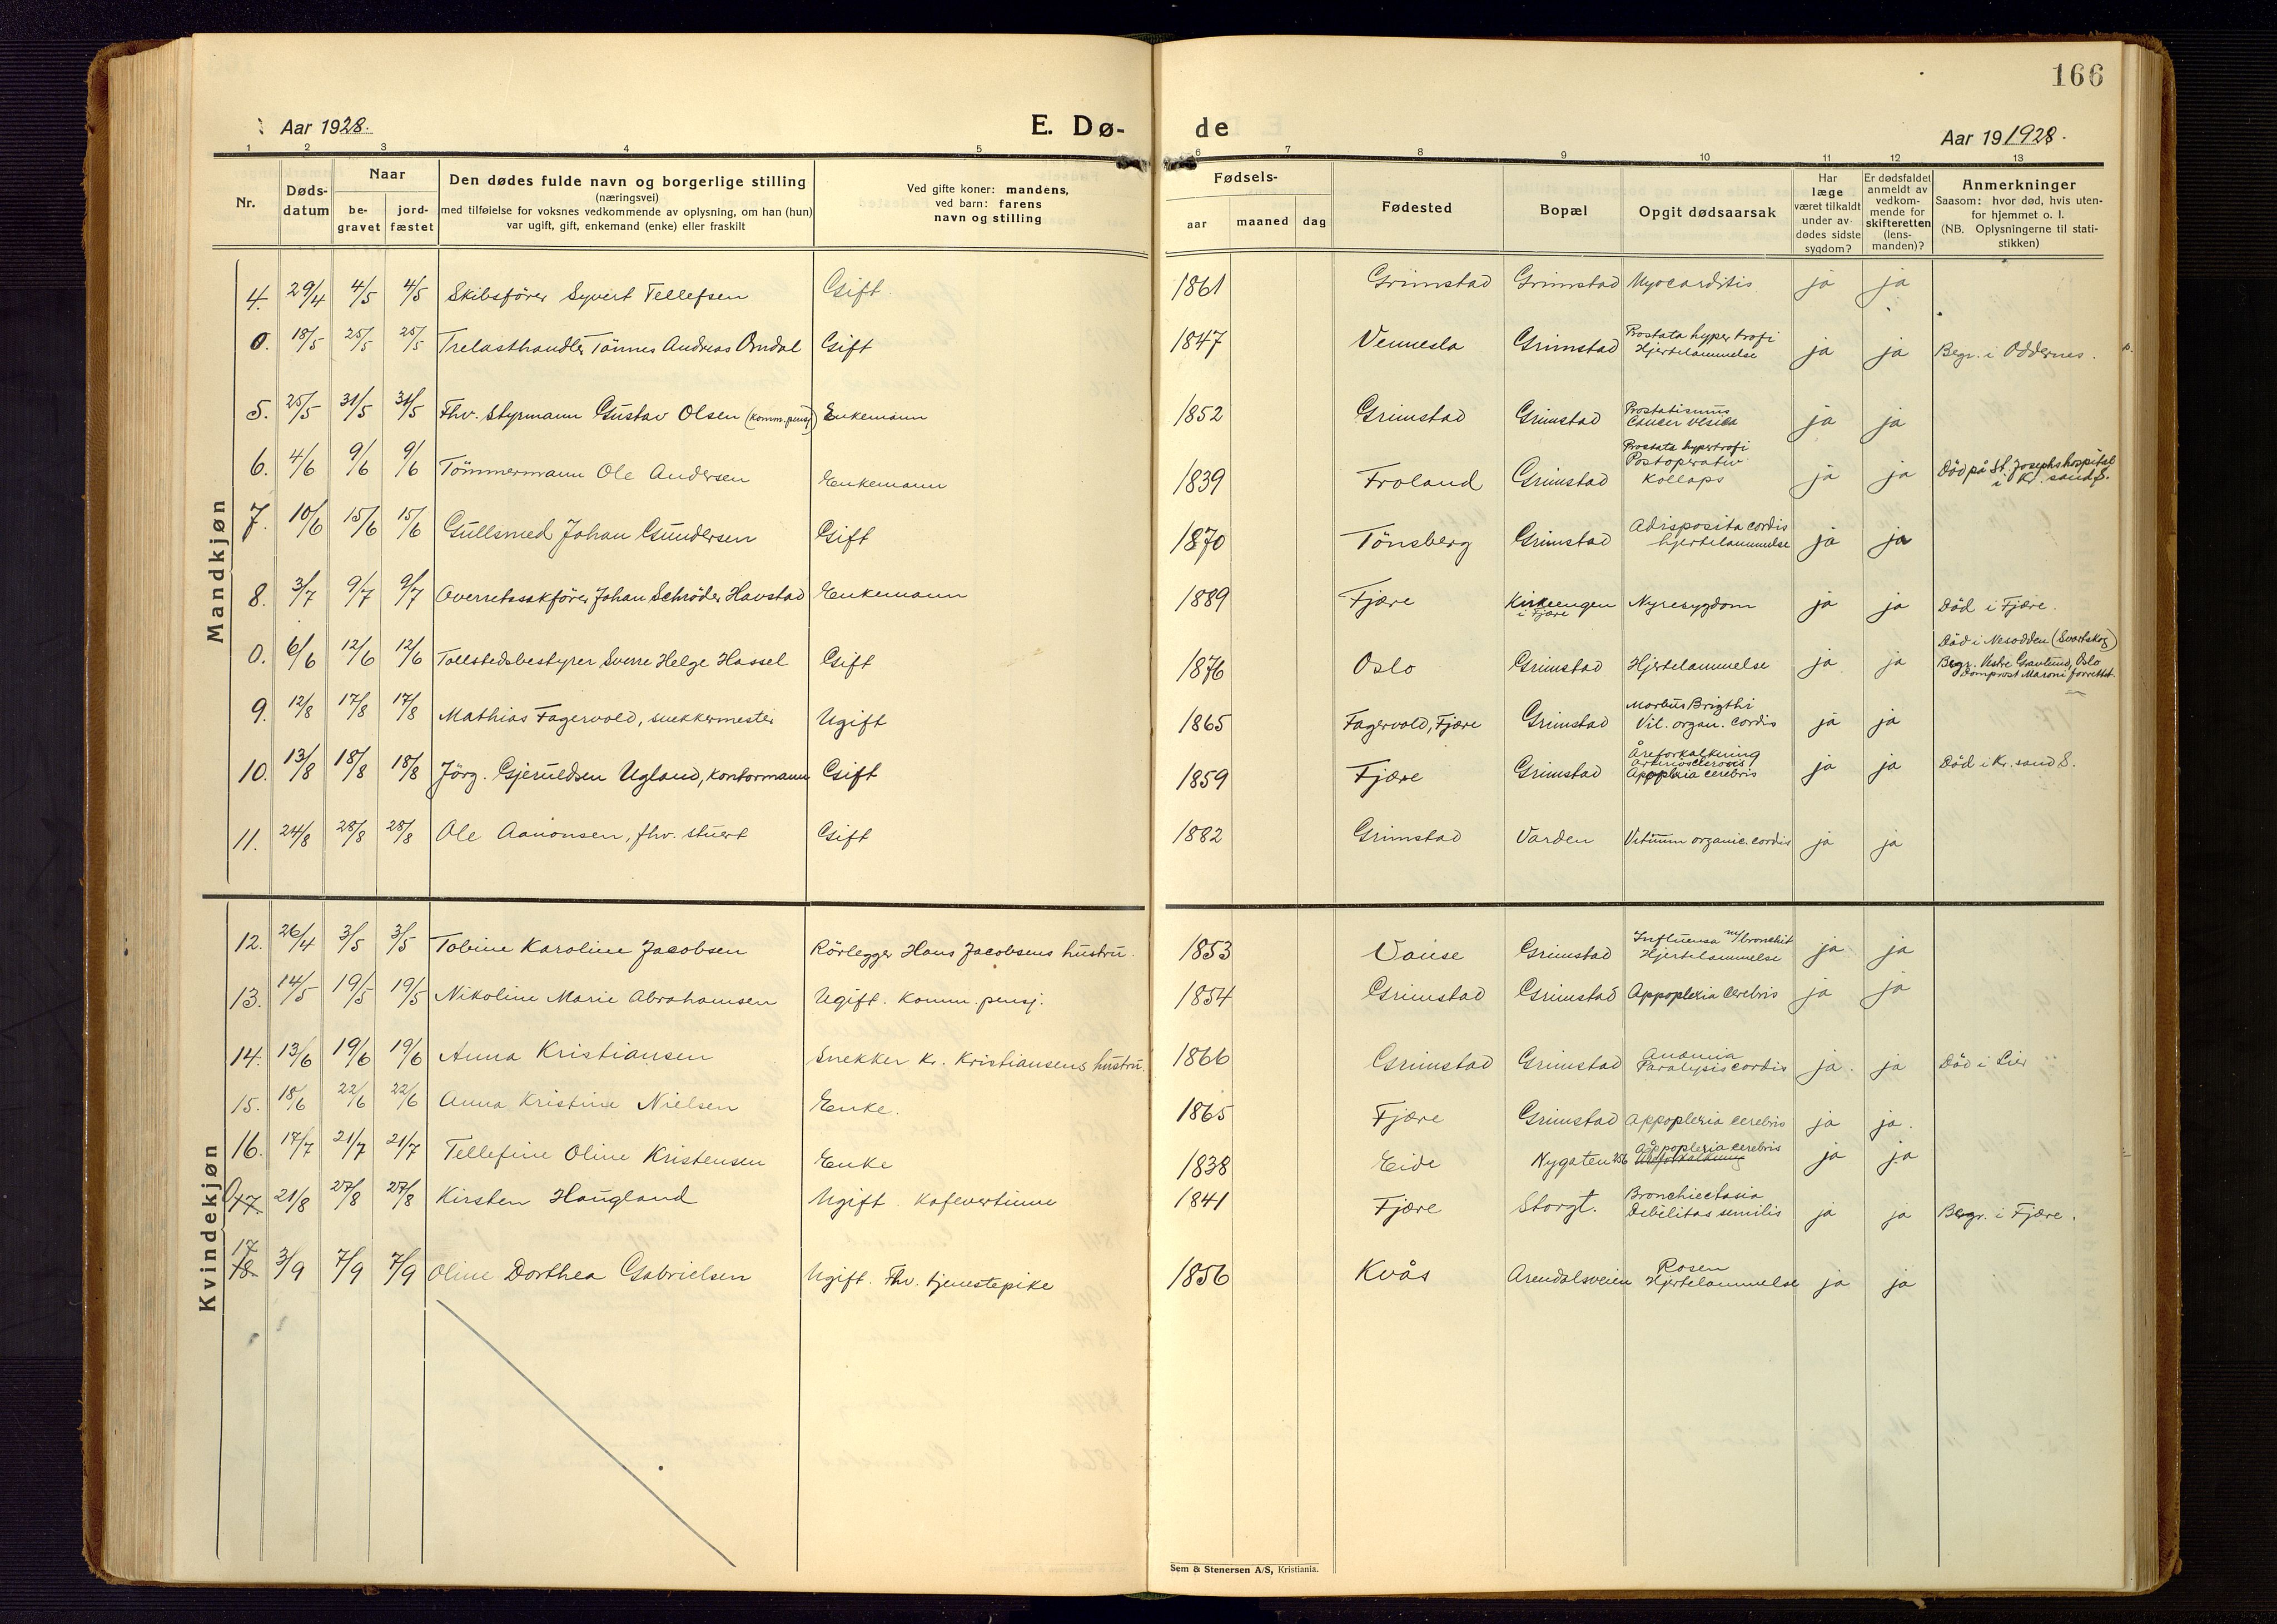 166
Aar 1928.
E. Dø-
de
Aar 19 1928.
1 2 3 4 5 6 7 8 9 10 11 12 13
Nr.
Døds-
datum
Naar
be-
gravet
jord-
fæstet
Den dødes fulde navn og borgerlige stilling
(næringsvei)
med tilføielse for voksnes vedkommende av oplysning, om han (hun)
var ugift, gift, enkemand (enke) eller fraskilt
Ved gifte koner: mandens,
ved barn: farens
navn og stilling
Fødsels-
aar maaned dag
Fødested
Bopæl
Opgit dødsaarsak
Har
læge
været tilkaldt
under av-
dødes sidste
sygdom?
Er dødsfaldet
anmeldt av
vedkom-
mende for
skifteretten
(lens-
manden)?
Anmerkninger
Saasom: hvor død, hvis uten-
for hjemmet o. l.
(NB. Oplysningerne til stati-
stikken)
Mandkjøn
4. 29/4 4/5 4/5 Skibsfører Syvert Tellefsen Gift. 1861 Grimstad Grimstad Myocarditis ja ja
0. 18/5 25/5 25/5 Trelasthandler Tønnes Andreas Omdal Gift 1847 Vennesla Grimstad Prostata hypertrofi
Hjertelammelse ja ja Begr. i Oddernes.
5. 25/5 31/5 31/5 Fhv. Styrmann Gustav Olsen (komm. pensj) Enkemann 1852 Grimstad Grimstad Prostatismus
Cancer vesica ja ja
6. 4/6 9/6 9/6 Tömmermann Ole Andersen Enkemann 1839 Froland Grimstad Prostata hypertrofi
Postoperativ
kollaps ja ja Död på St. Josephs hospital
i Kr. sand S.
7. 10/6 15/6 15/6 Gullsmed Johan Gundersen Gift 1870 Tönsberg Grimstad Adisposita cordis
hjertelammelse ja ja
8. 3/7 9/7 9/7 Overretssakfører Johan Schröder Havstad Enkemann 1889 Fjære Kirkeengen
i Fjære Nyresygdom ja ja Död i Fjære.
0. 6/6 12/6 12/6 Tollstedsbestyrer Sverre Helge Hassel Gift 1876 Oslo Grimstad Hjertelammelse ja ja Död i Nesodden (Svartskog)
Begr. Vestre Gravlund, Oslo
Domprost Maroni forrettet.
9. 12/8 17/8 17/8 Mathias Fagervold, snekkermester Ugift 1865 Fagervold, Fjære Grimstad Morbus Brigthi
Vit. organ. cordis ja ja
10. 13/8 18/8 18/8 Jörg. Gjeruldsen Ugland, kontormann Gift 1859 Fjære Grimstad Åreforkalkning
Arteriosclerosis
Appoplexia cerebris ja ja Död i Kr. sand S.
11. 24/8 28/8 28/8 Ole Aanonsen, fhv. stuert Gift 1882 Grimstad Varden Vitium organic. cordis ja ja
Kvindekjøn
12. 26/4 3/5 3/5 Tobine Karoline Jacobsen Rörlegger Hans Jacobsens hustru. 1853 Vanse Grimstad Influensa m/bronchit
Hjertelammelse ja ja
13. 14/5 19/5 19/5 Nikoline Marie Abrahamsen Ugift. Komm. pensj. 1854 Grimstad Grimstad Appoplexia cerebris ja ja
14. 13/6 19/6 19/6 Anna Kristiansen Snekker Kr. Kristiansens hustru. 1866 Grimstad Grimstad Anæmia
Paralysis cordis ja. ja Död i Lier
15. 18/6 22/6 22/6 Anna Kristine Nielsen Enke. 1865 Fjære Grimstad Appoplexia cerebris ja ja.
16. 17/7 21/7 21/7 Tellefine Oline Kristensen Enke 1838 Eide Nygaten 256 Appoplexia cerebris
ja ja
0 17. 21/8 27/8 27/8 Kirsten Haugland Ugift. Kafevertinne 1841 Fjære Storgt. Bronchiectasia
Debilitas senilis ja ja Begr. i Fjære.
17
18. 3/9 7/9 7/9 Oline Dorthea Gabrielsen Ugift. Fhv. tjenestepike 1856 Kvås Arendalsveien Rosen
Hjertelammelse ja ja
Sem & Stenersen A/S, Kristiania.